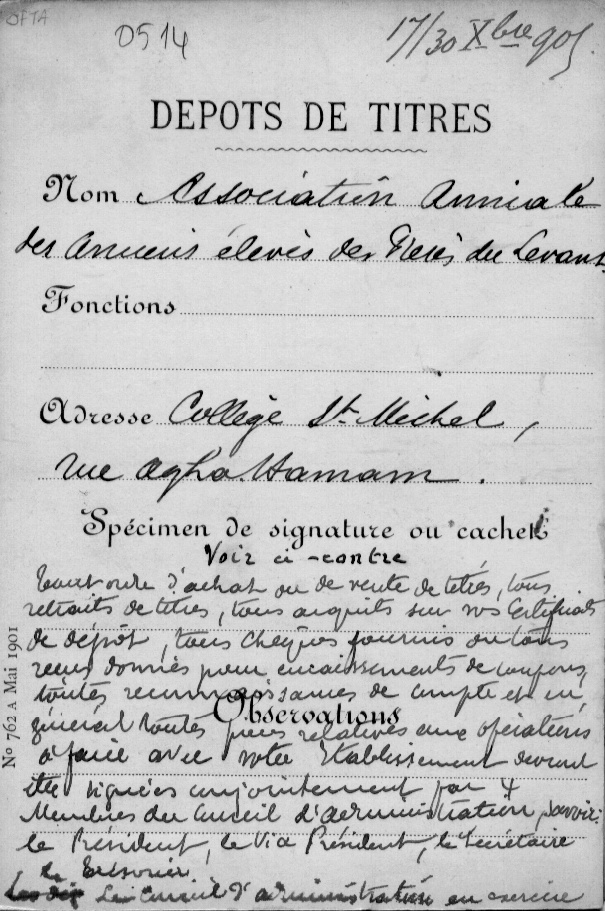 OFTA
D514
17/30 Xbre 905
DEPOTS DE TITRES
Nom Association Amicale
des Anciens élèves des Frères du Levant
Fonctions
Adresse Collège St. Michel,
rue Agha Hamam.
Spécimen de signature ou cachet
Voir ci-contre
Tout ordre d'achat ou de vente de titres, tous
retraits de titres, tous acquits sur nos Certificats
de dépôt, tous chèques fournis ou tous
reçus donnés pour encaissements de coupons,
toutes reconnaissances de compte et en
Observations
général toutes pièces relatives aux opérations
à faire avec notre Etablissement devront
être signées conjointement par 4
Membres du Conseil d'administration, savoir:
le Président, le Vice Président, le Secrétaire
le Trésorier
Le Conseil d'administration en exercice
No 762 A Mai 1901